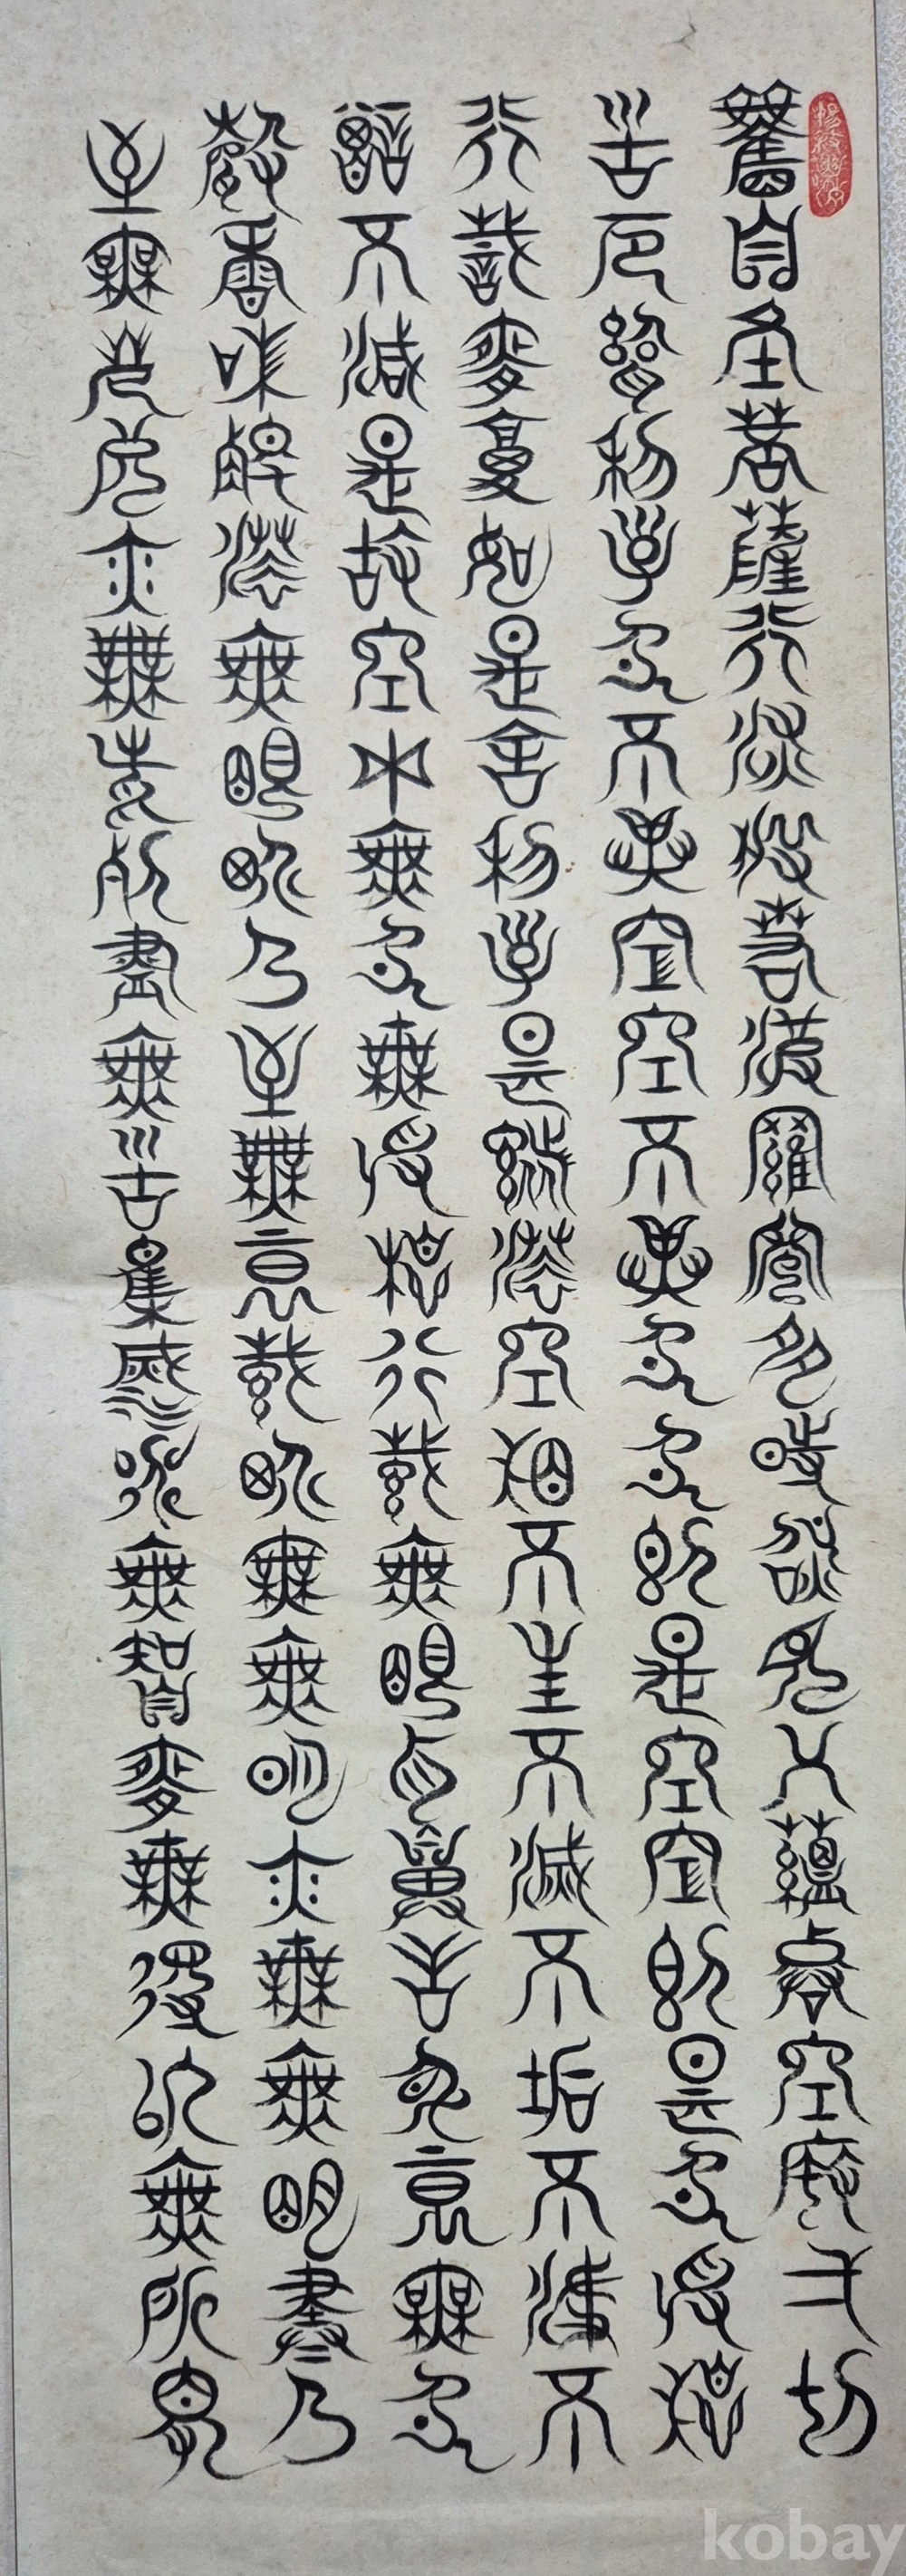 觀自在菩薩行深般若波羅蜜多時照見五蘊皆空度一切
苦厄舍利子色不異空空不異色色即是空空即是色受想
行識亦復如是舍利子是諸法空相不生不滅不垢不淨不
增不減是故空中無色無受想行識無眼耳鼻舌身意無色
聲香味觸法無眼界乃至無意識界無無明亦無無明盡乃
至無老死亦無老死盡無苦集滅道無智亦無得以無所得
kobay